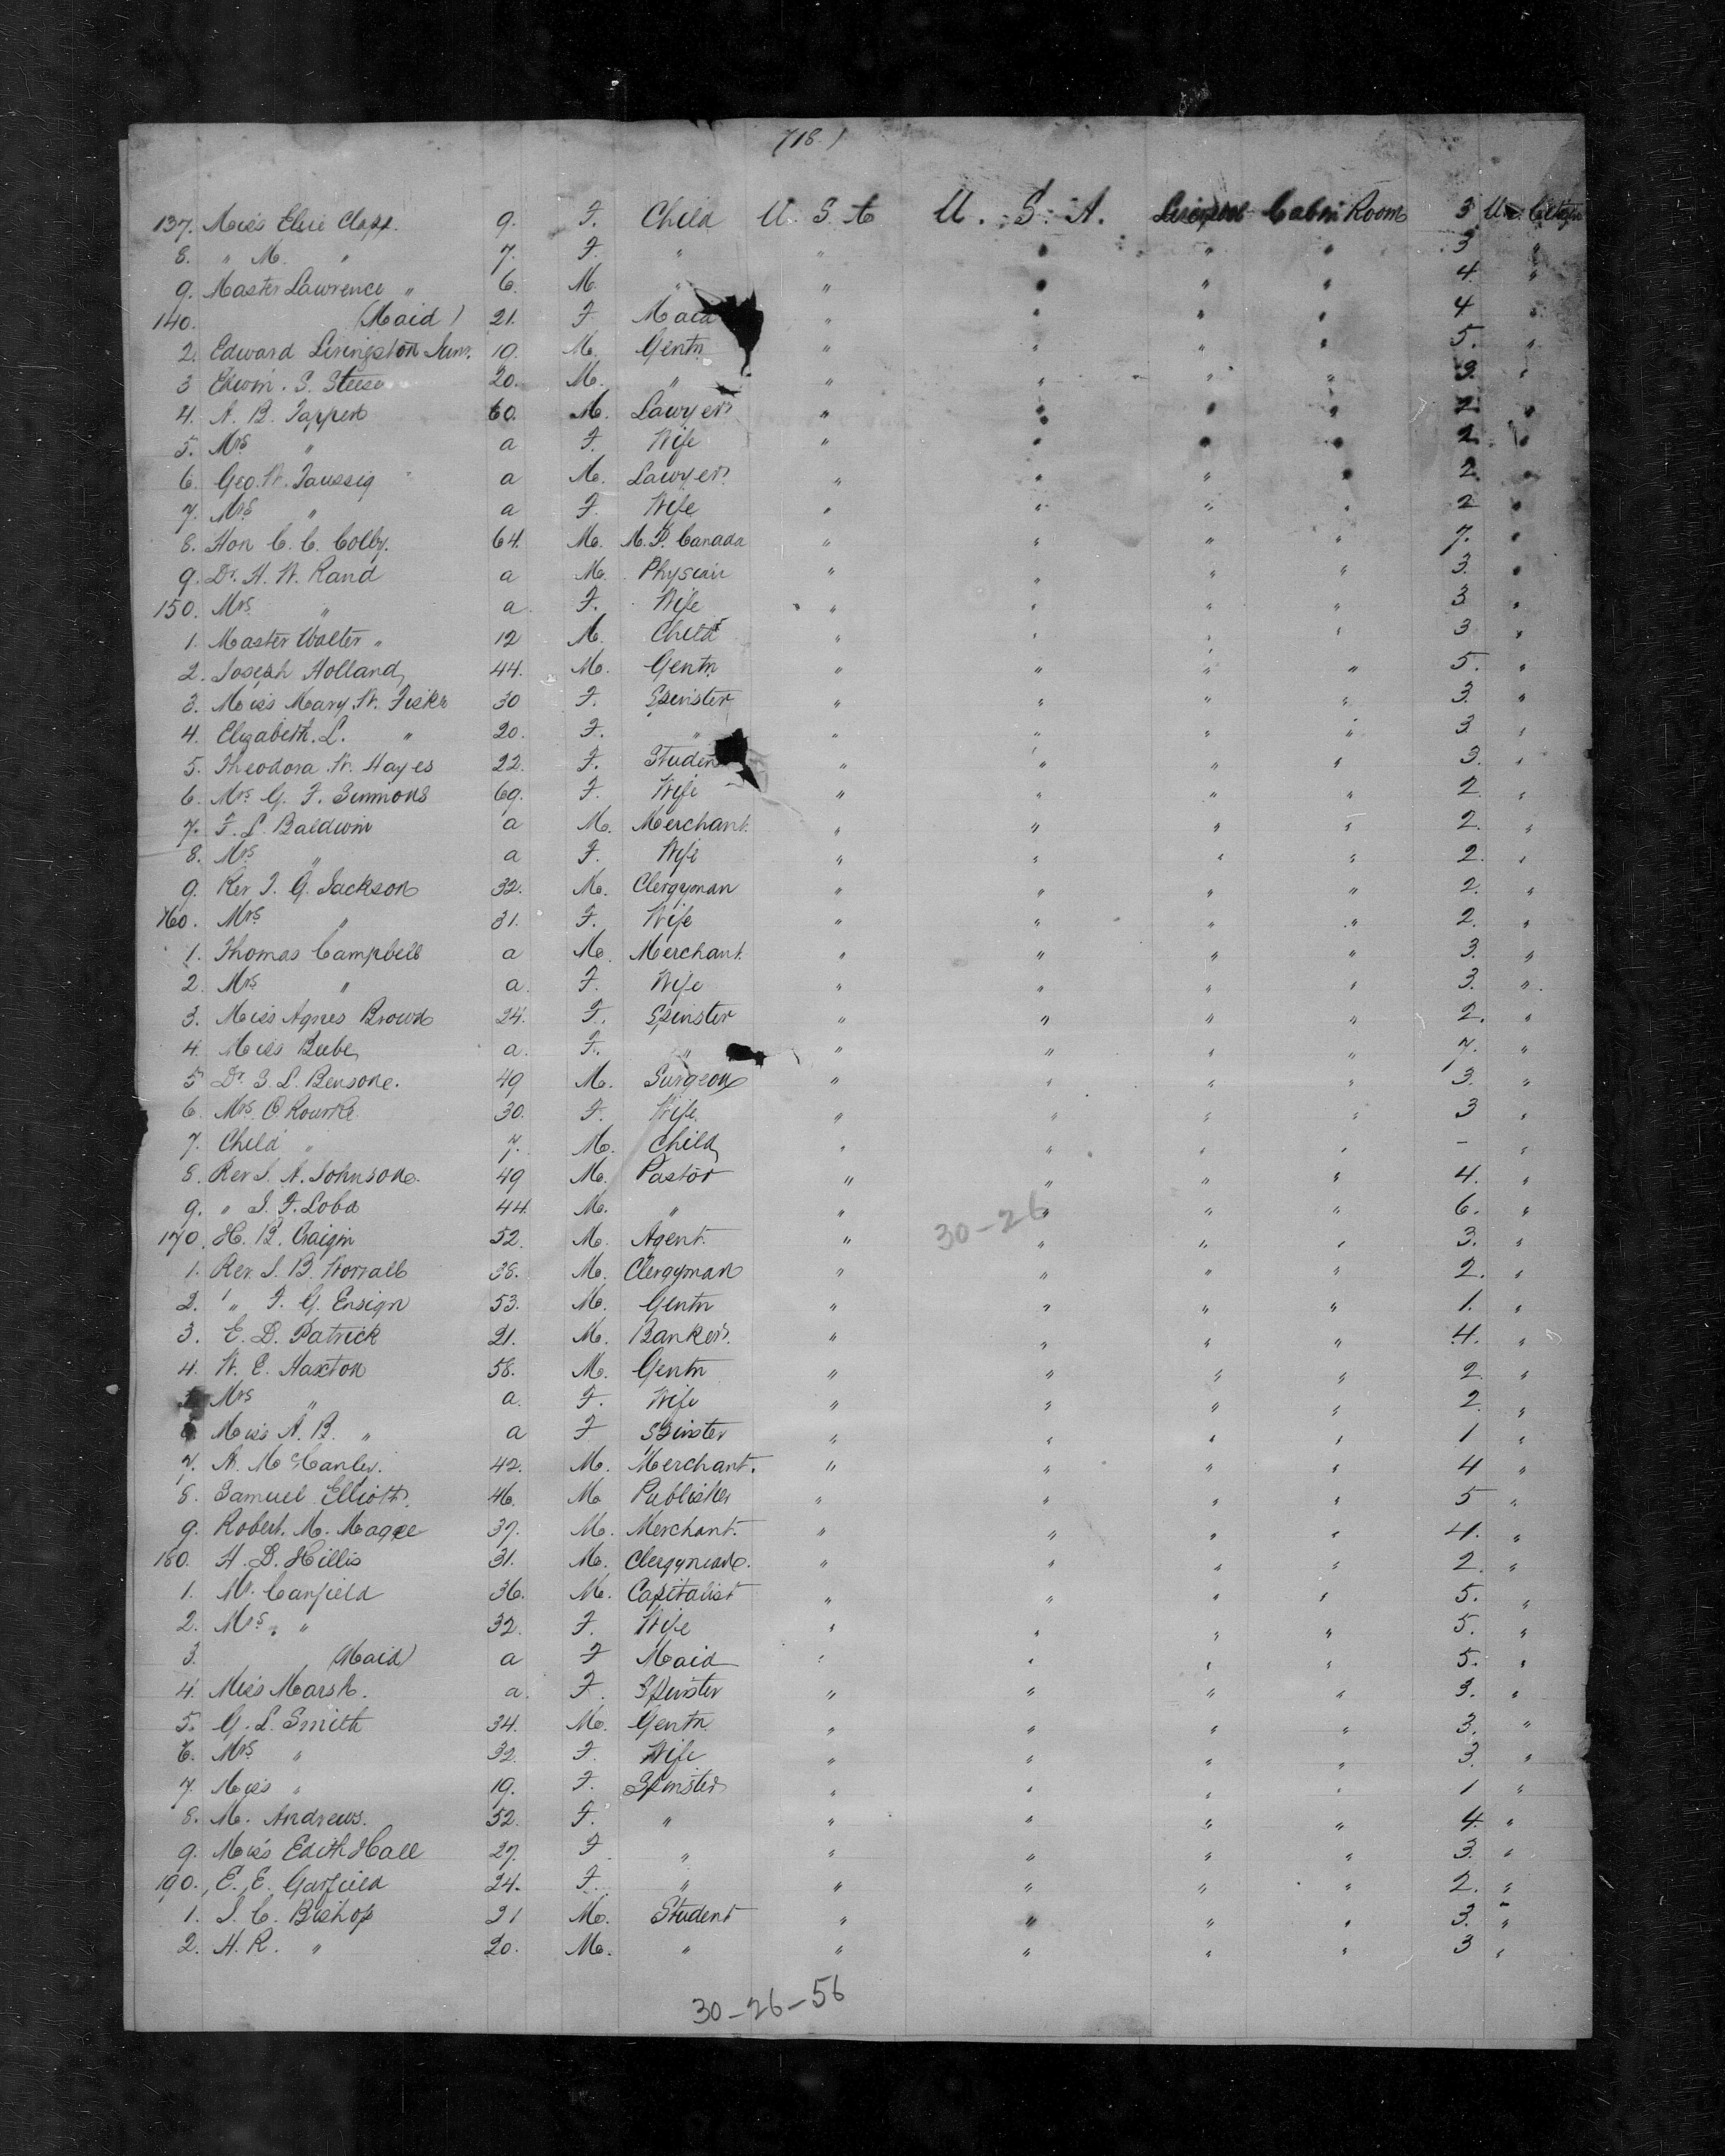 718.)
137. Miss Elsie Clapp. 9. F. Child U. S. A U. S. A. Liverpool Cabin Room 3 U.S. Citizen
8. " M. " 7. F. " " " " " 3 "
9. Master Lawrence " 6. M. " " " " " 4. "
140. (Maid) 21. F Maid " " " " 4 "
2. Edward Livingston Junr. 19. M. Gentn " " " " 5. "
3 Edwin. S. Steese 20. M. " " " " " 3. "
4. A. B. Tappen 60. M. Lawyer " " " " 2 "
5. Mrs " a F. Wife " " " " 2. "
6. Geo. W. Taussig a M. Lawyer. " " " " 2. "
7. Mrs " a F. Wife " " " " 2 "
8. Hon C. C. Colby. 64. M. M.P. Canada " " " " 7. "
9. Dr. H. W. Rand a M. Physcian " " " " 3. "
150. Mrs. " a. F. Wife " " " " 3 "
1. Master Walter " 12 M. Child " " " " 3 "
2. Joseph Holland 44. M. Gentn. " " " " 5. "
3. Miss Mary. W. Fiske 30 F. Spinster " " " " 3. "
4. Elizabeth. L. " 20. F. " " " " " 3. "
5. Theodora W. Hayes 22. F. Studen " " " " 3. "
6. Mrs G. F. Simmons 69. F. Wife " " " " 2. "
7. F. L. Baldwin a M. Merchant. " " " " 2. "
8. Mrs " a F. Wife " " " " 2. "
9. Rev T. G. Jackson 32. M. Clergyman " " " " 2. "
160. Mrs " 31. F. Wife " " " " 2. "
1. Thomas Campbell a M. Merchant. " " " " 3. "
2. Mrs " a. F. Wife " " " " 3. "
3. Miss Agnes Brown 24. F. Spinster " " " " 2. "
4. Miss Beebe a. F. " " " " " 7. "
5 Dr. S. L. Benson. 49 M. Surgeon " " " " 3. "
6. Mrs. O Rourke 30. F. Wife. " " " " 3 "
7. Child " 7. M. Child " " " " - "
8. Rev J. A. Johnson. 49 M. Pastor " " " " 4. "
9. " J. F. Loba 44. M. " " " " " 6. "
30-26
170. H. B. Craigin 52. M. Agent. " " " " 3. "
1. Rev. J. B. Worrall 38. M. Clergyman " " " " 2. "
2. " F. G. Ensign 53. M. Gentn " " " " 1. "
3. E. D. Patrick 21. M. Banker. " " " " 4. "
4. W. E. Haxton 58. M. Gentn " " " " 2 "
5 Mrs " a. F. Wife " " " " 2. "
6 Miss A. B. " a F Spinster " " " " 1 "
7. A. McCanley. 42. M. Merchant. " " " " 4 "
8. Samuel Elliott. 46. M Publisher " " " " 5 "
9. Robert. M. Magee 37. M. Merchant. " " " " 4. "
180. H. D. Hillis 31. M. Clergyman. " " " " 2. "
1. Mr. Canfield 36. M. Capitalist " " " " 5. "
2. Mrs. " " 32. F. Wife " " " " 5. "
3. (Maid) a F Maid " " " " 5. "
4. Miss Marsh. a. F. Spinster " " " " 3. "
5. G. L. Smith 34. M. Gentn. " " " " 3. "
6. Mrs " 32. F. Wife " " " " 3. "
7. Miss " 19. F. Spinster " " " " 1 "
8. M. Andrews. 52. F. " " " " " 4. "
9. Miss Edith Hall 27. F. " " " " " 3. "
190. E. E. Garfield 24. F. " " " " " 2. "
1. J. C. Bishop 21 M. Student " " " " 3. "
2. H. R. " 20. M. " " " " " 3 "
30-26-56